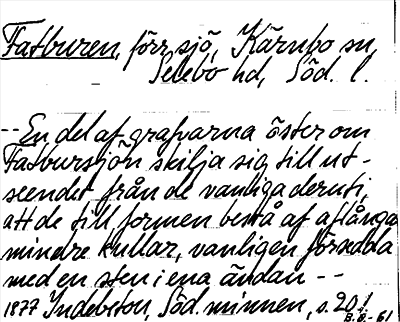 Fatburen, förr sjö, Kärnbo sn,
Selebo hd, Söd. l.
-- En del af grafvarna öster om
Fatbursjön skilja sig till ut-
seendet från de vanliga deruti,
att de till formen bestå af aflånga
mindre kullar, vanligen försedda
med en sten i ena ändan --
1877 Indebetou, Söd. minnen, s. 201
B.G.-61